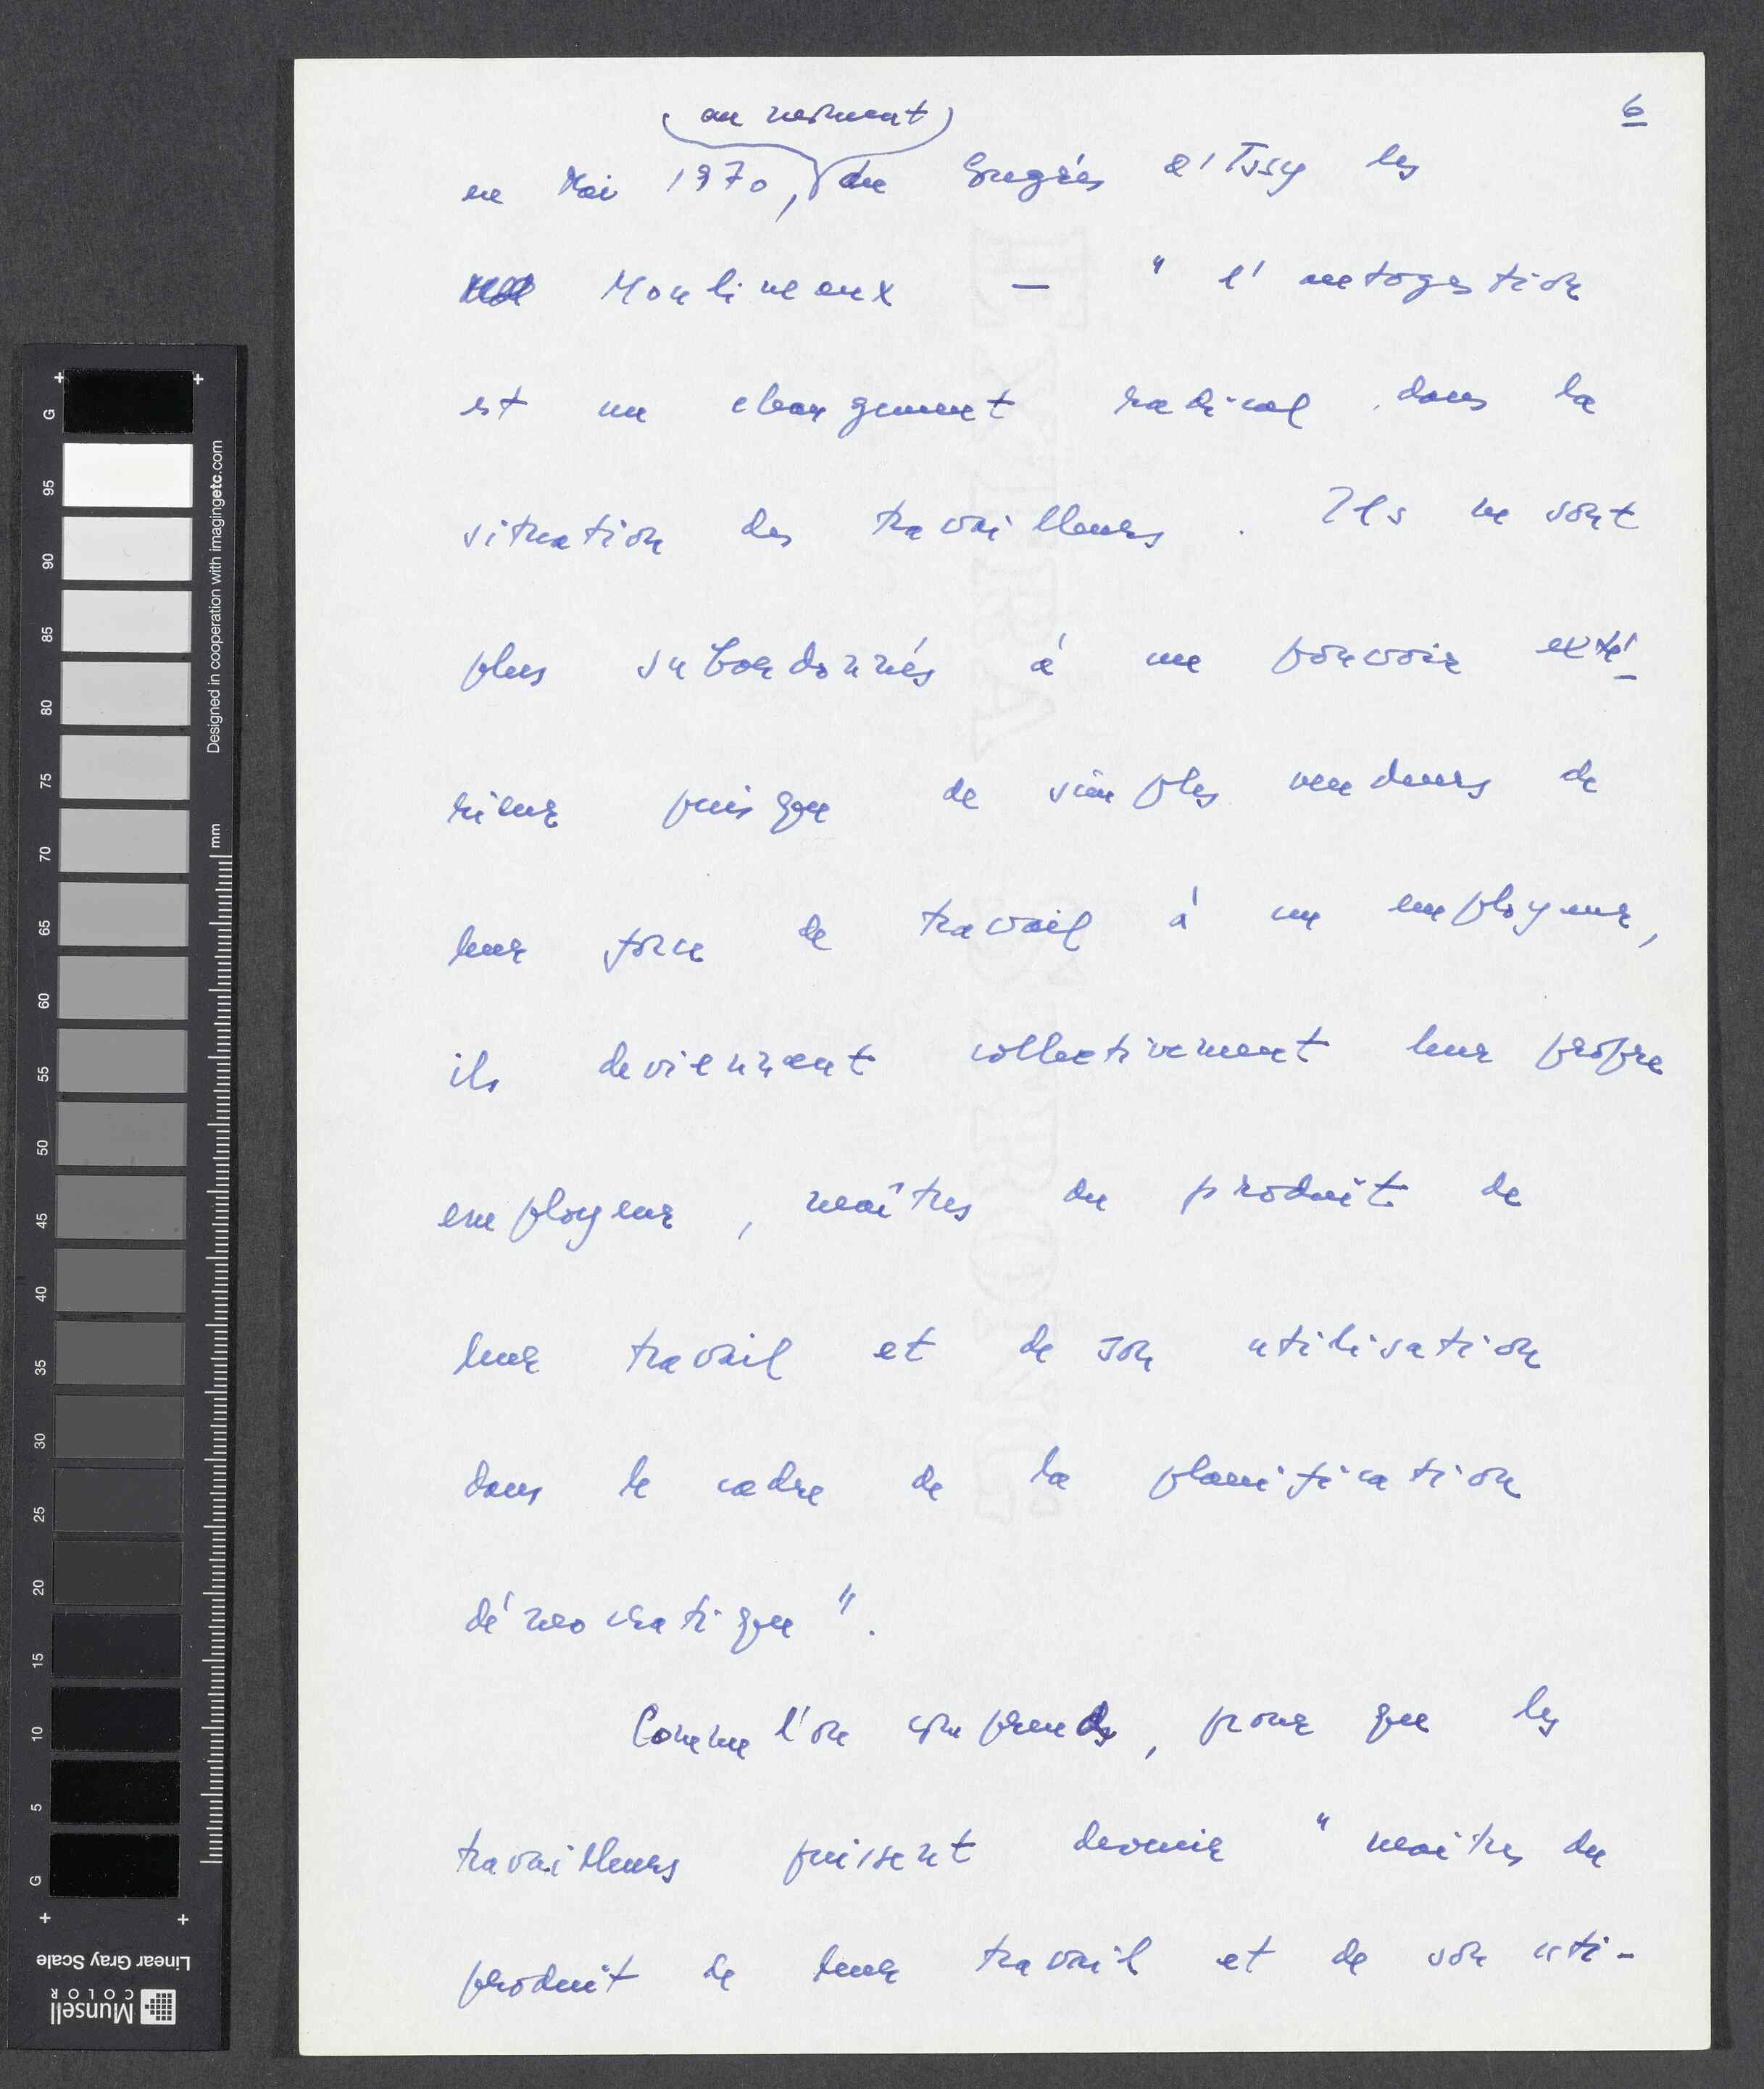 6
au moment
en Mai 1970, du Congrès d'Issy les
Moulineaux — "l'autogestion
est un changement radical dans la
situation des travailleurs. Ils ne sont
plus subordonnés à un pouvoir exté-
rieur puisque de simples vendeurs de
leur force de travail à un employeur,
ils deviennent collectivement leur propre
employeur, maîtres du produit de
leur travail et de son utilisation
dans le cadre de la planification
démocratique".
Comme l'on comprends, pour que les
travailleurs puissent devenir "maîtres du
produit de leur travail et de son uti-
G
95
90
85
80
75
70
65
60
55
50
45
40
35
30
25
20
15
10
5
G
Designed in cooperation with imagingetc.com
mm
Linear Gray Scale
Munsell
COLOR